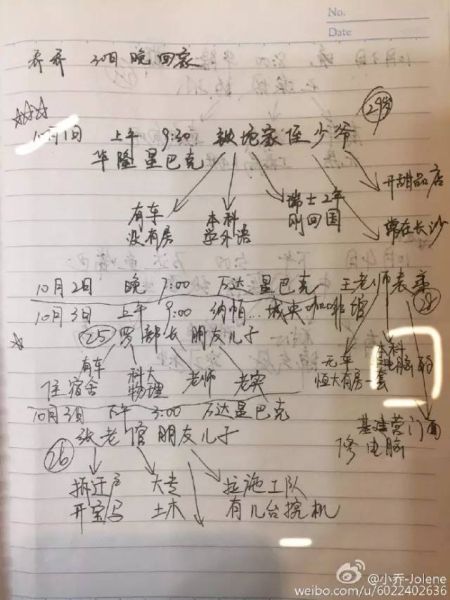 No.
Date
乔乔 30日晚回家
10月1日 上午 9:30 铁坨家侄少爷 29岁
华隆星巴克
有车 没有房
本科 学外语
瑞士2年 刚回国
常在长沙
开甜品店
10月2日 晚 7:00 万达星巴克 王老师表弟 28
无车 恒大有房一套
本科 电脑
基建营门面 修电脑
10月3日 上午 9:00 纳帕...城央咖啡馆
25 罗部长 朋友儿子
有车 住宿舍
科大 物理
老师
老实
10月3日 下午 3:00 万达星巴克
26 张老官 朋友儿子
拆迁户 开宝马
大专 土木
拉施工队 有几台挖机
@小乔-Jolene
weibo.com/u/6022402636